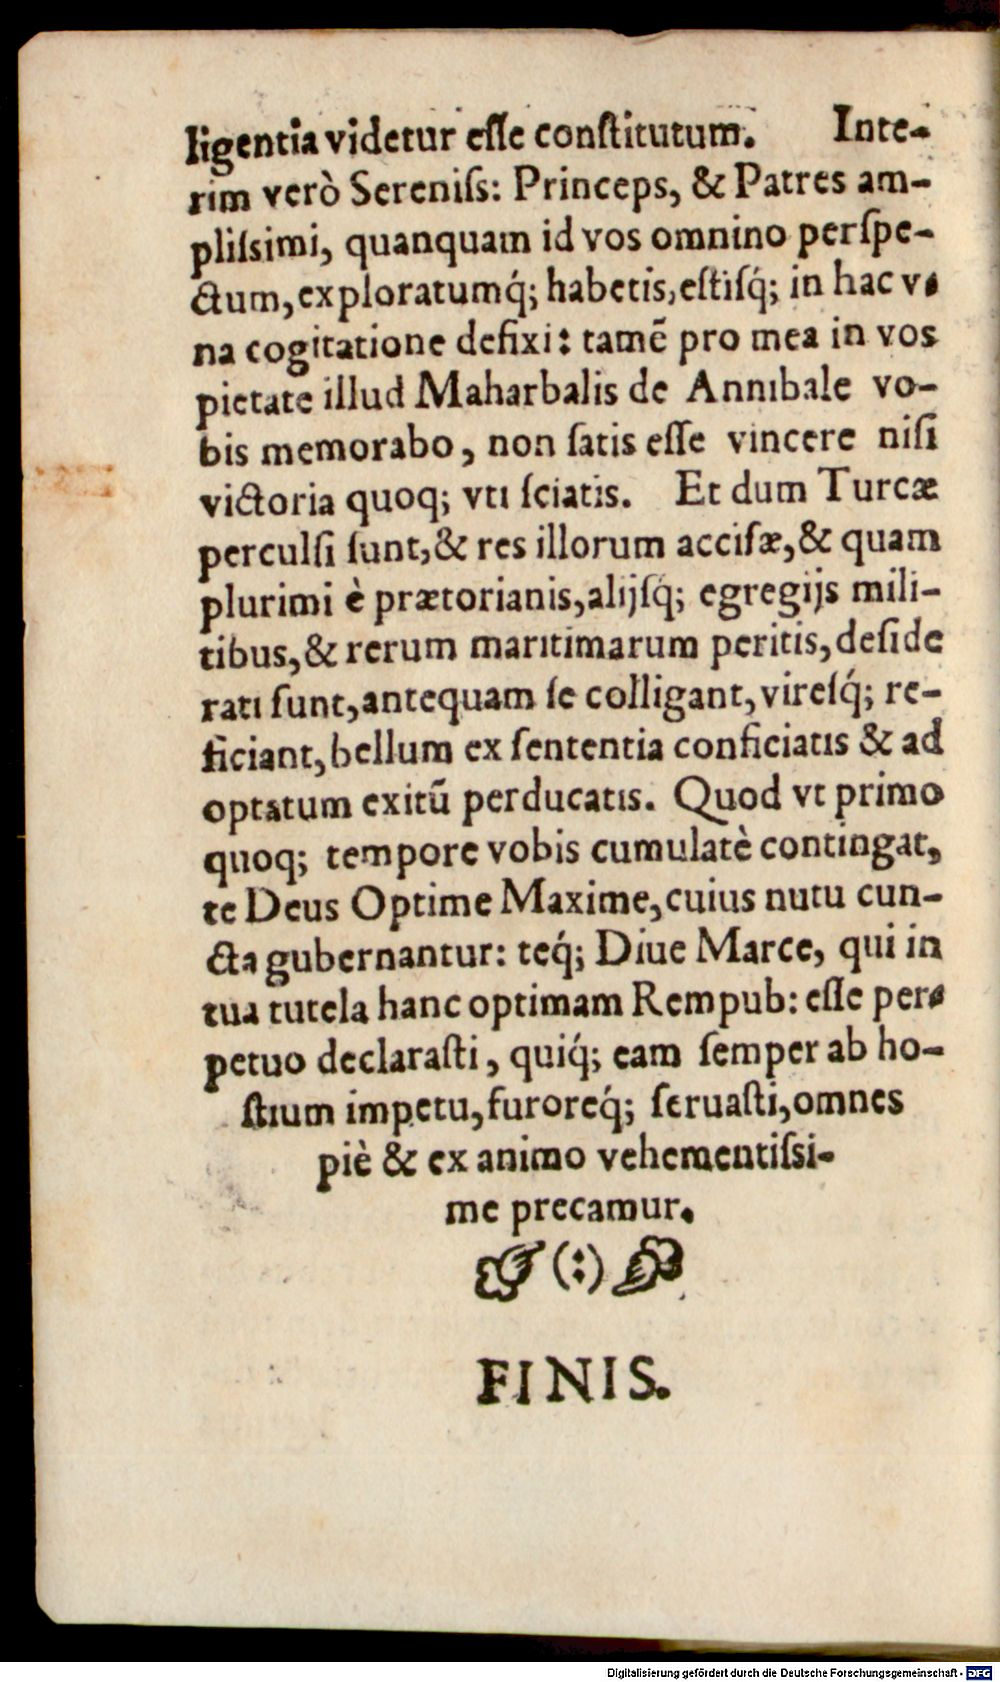 ligentia videtur eſſe conſtitutum. Inte-
rim verò Sereniſs: Princeps, & Patres am-
pliſsimi, quanquam id vos omnino perſpe-
ctum, exploratumq́; habetis, eſtiſq́; in hac v-
na cogitatione defixi: tamẽ pro mea in vos
pietate illud Maharbalis de Annibale vo-
bis memorabo, non ſatis eſſe vincere niſi
victoria quoq; vti ſciatis. Et dum Turcæ
perculſi ſunt, & res illorum acciſæ, & quam
plurimi è prætorianis, alijſq; egregijs mili-
tibus, & rerum maritimarum peritis, deſide
rati ſunt, antequam ſe colligant, vireſq́; re-
ficiant, bellum ex ſententia conficiatis & ad
optatum exitũ perducatis. Quod vt primo
quoq; tempore vobis cumulatè contingat,
te Deus Optime Maxime, cuius nutu cun-
cta gubernantur: teq́; Diue Marce, qui in
tua tutela hanc optimam Rempub: eſſe per-
petuo declaraſti, quiq́; eam ſemper ab ho-
ſtium impetu, furoreq́; ſeruaſti, omnes
piè & ex animo vehementiſsi-
me precamur.
(:)
FINIS.
Digitalisierung gefördert durch die Deutsche Forschungsgemeinschaft - DFG